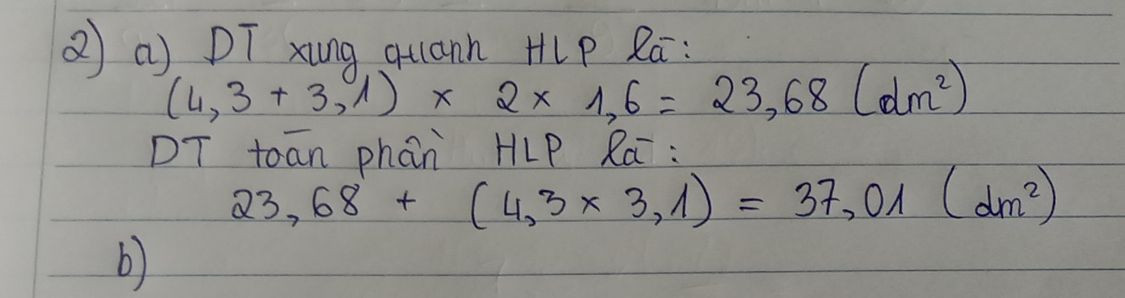 2) a) DT xung quanh HLP là:
(4,3 + 3,1) × 2 × 1,6 = 23,68 (dm²)
DT toàn phần HLP là:
23,68 + (4,3 × 3,1) = 37,01 (dm²)
b)